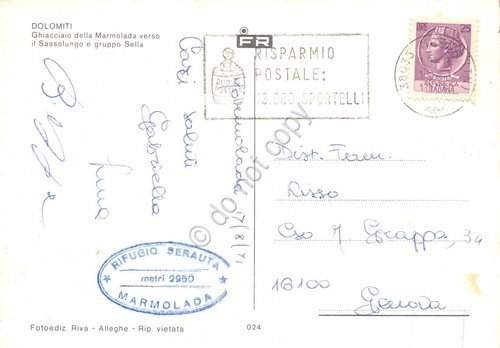 DOLOMITI
Ghiacciaio della Marmolada verso
il Sassolungo e gruppo Sella
FR
RISPARMIO
POSTALE:
13.000 SPORTELLI
38035
25
Marmolada 17/8/71
Cari saluti
Gabriella
RIFUGIO SERAUTA
metri 2950
MARMOLADA
Dist. Fam.
Russo
Cso M. Grappa, 34
16100
Genova
Fotoediz. Riva - Alleghe - Rip. vietata
024
do not copy